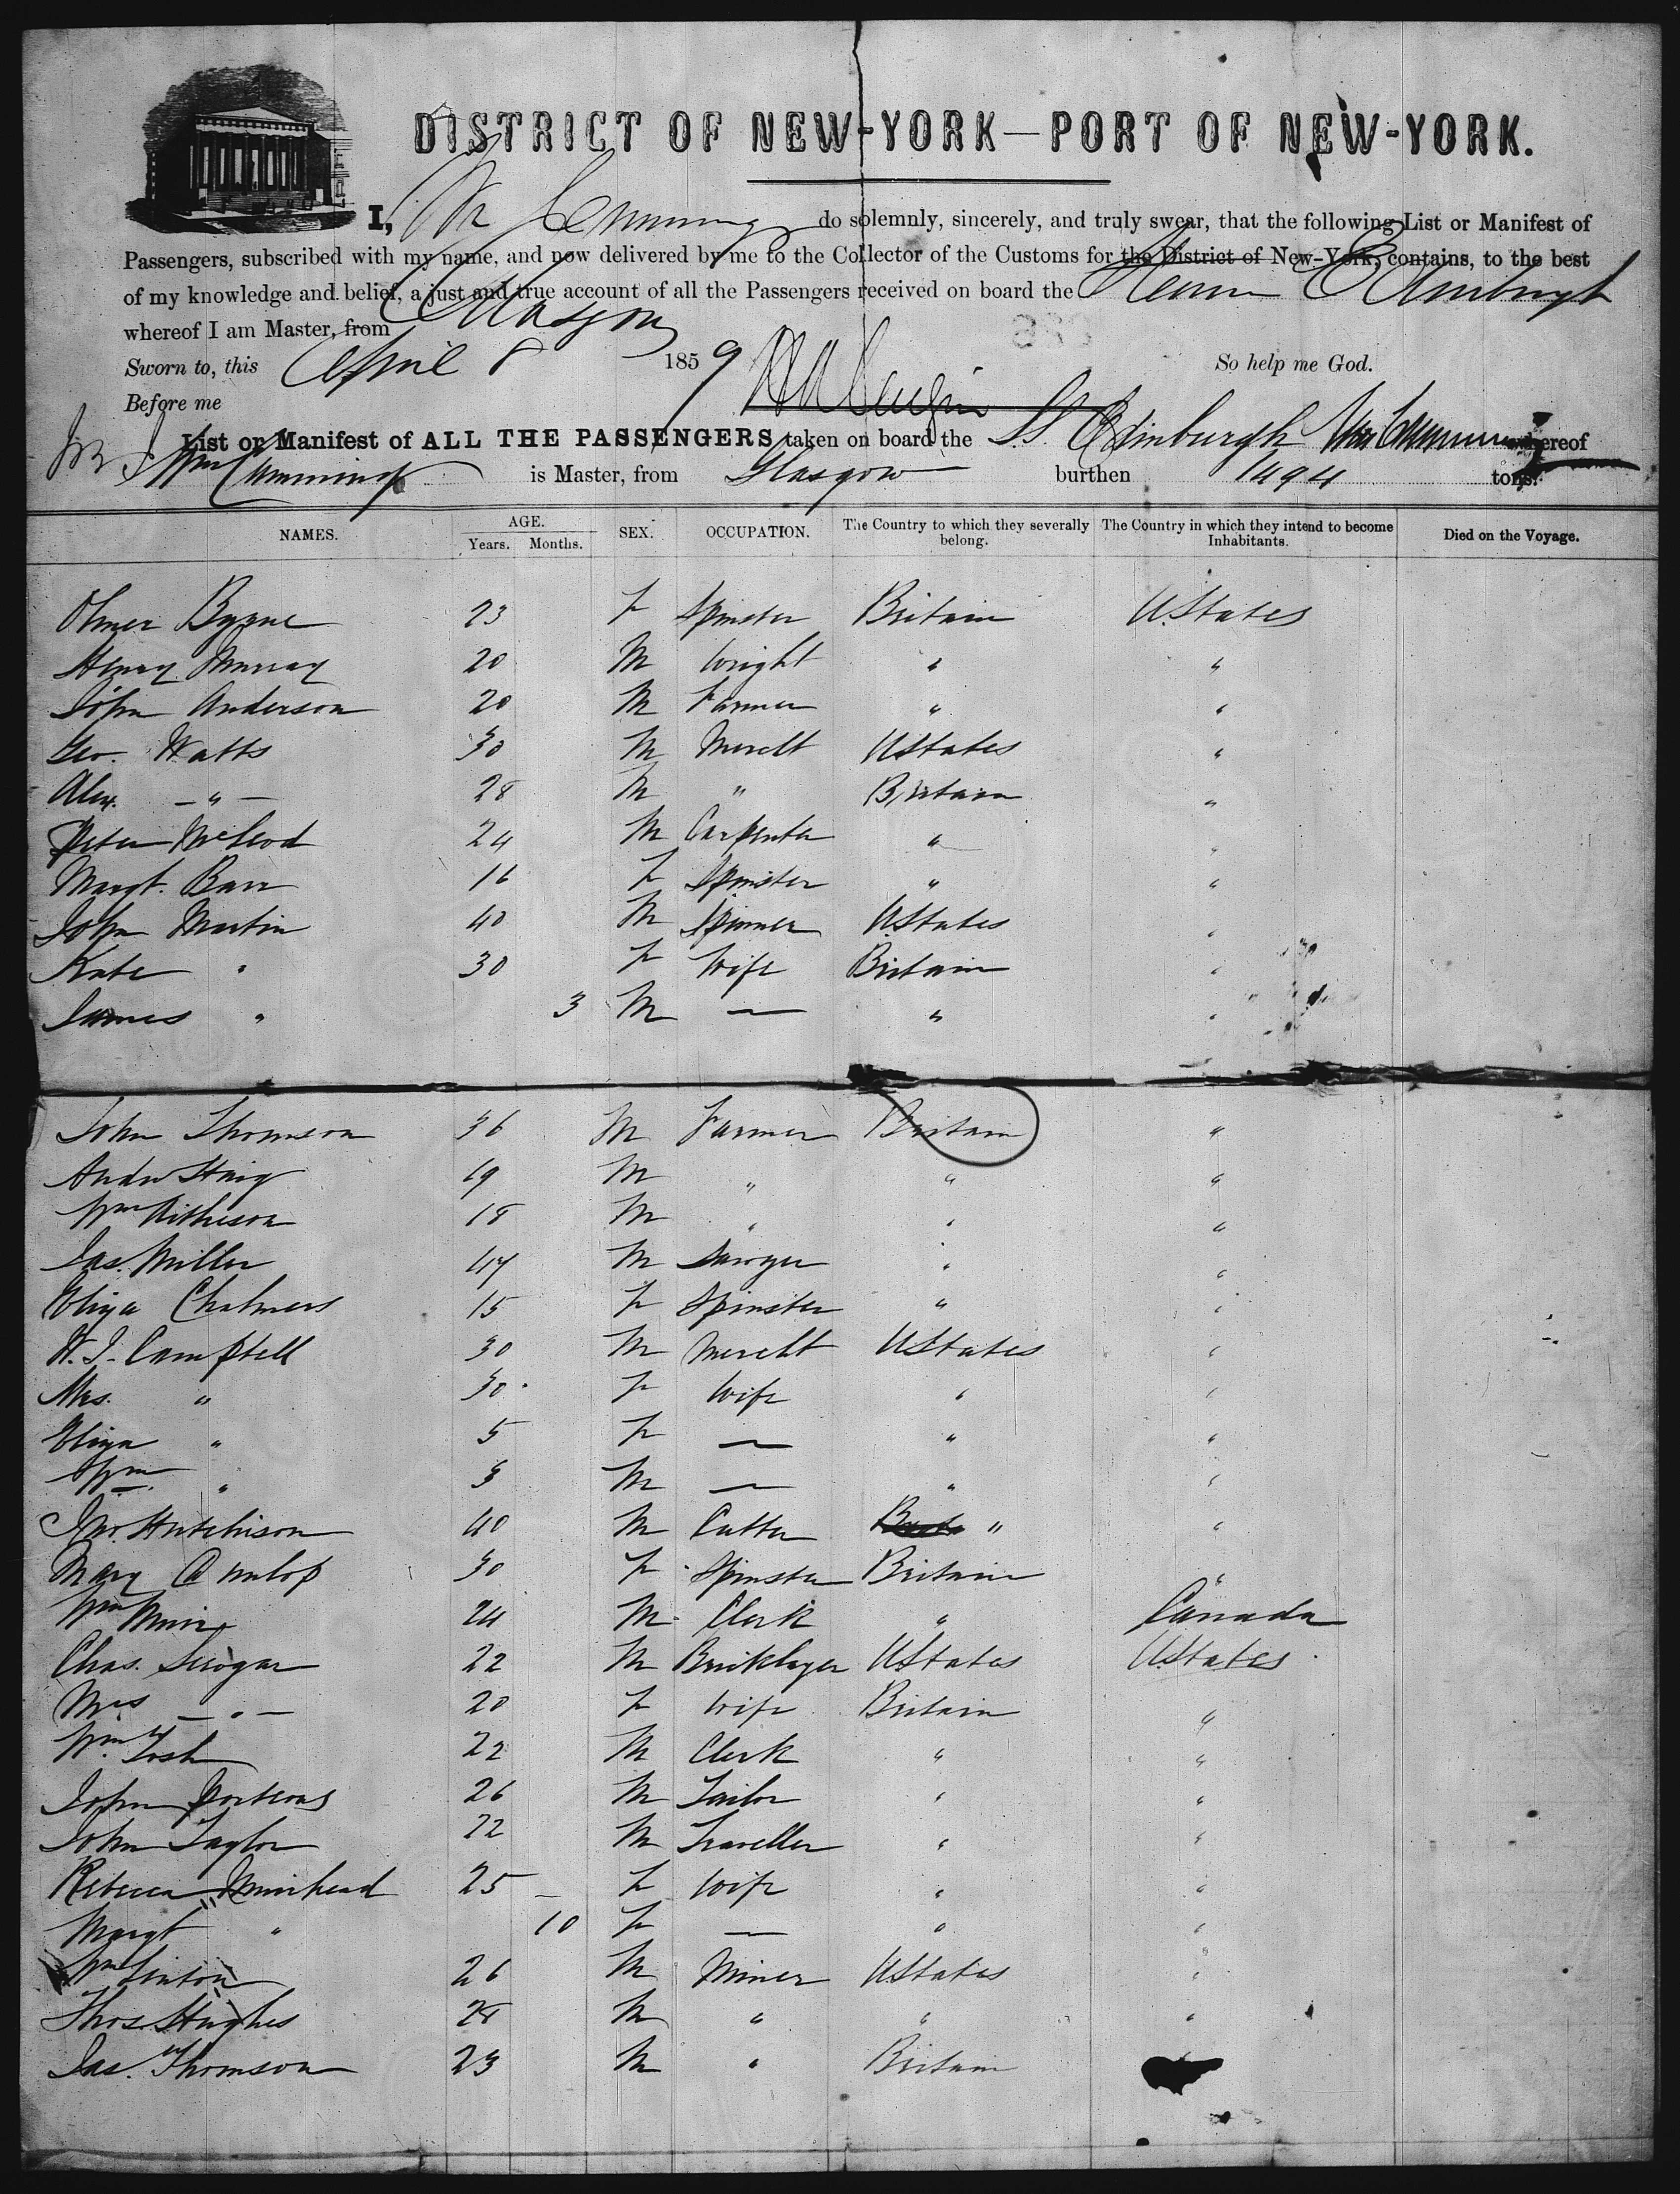 DISTRICT OF NEW-YORK—PORT OF NEW-YORK.
I, Wm Cumming do solemnly, sincerely, and truly swear, that the following List or Manifest of
Passengers, subscribed with my name, and now delivered by me to the Collector of the Customs for the District of New-York, contains, to the best
of my knowledge and belief, a just and true account of all the Passengers received on board the Steamer Edinburgh
whereof I am Master, from Glasgow
Sworn to, this April 8 1859 So help me God.
Before me
List or Manifest of ALL THE PASSENGERS taken on board the S.S. Edinburgh Wm Cumming whereof
Wm Cumming is Master, from Glasgow burthen 1494 tons.
NAMES. AGE. Years. Months. SEX. OCCUPATION. The Country to which they severally belong. The Country in which they intend to become Inhabitants. Died on the Voyage.
Byrne 23 F Spinster Britain U.States
Henry Murray 20 M Wright " "
John Anderson 20 M Farmer " "
Geo. Watts 30 M Mercht UStates "
Alex. — " — 28 M " Britain "
Peter McLeod 24 M Carpenter " "
Margt. Barr 16 F Spinster " "
John Martin 40 M Spinner UStates "
Kate " 30 F Wife Britain "
James " 3 M — " "
John Thomson 36 M Farmer Britain "
Andw Haig 19 M " " "
Wm Aitheson 18 M " " "
Jas. Miller 44 M Sawyer " "
Eliza Chalmers 15 F Spinster " "
W. J. Campbell 30 M Mercht UStates "
Mrs. " 30 F Wife " "
Eliza " 5 F — " "
Wm. " 3 M — " "
Jno. Hutchison 40 M Cutter " "
Mary Dunlop 30 F Spinster Britain "
Wm Muir 24 M Clerk " Canada
Chas. 22 M Bricklayer UStates UStates
Mrs — " — 20 F Wife Britain "
Wm. Tosh 22 M Clerk " "
John Porteous 26 M Tailor " "
John Taylor 22 M Traveller " "
Rebecca Muirhead 25 — F Wife " "
Margt " 10 F — " "
Wm Linton 26 M Miner UStates "
Thos. Hughes 28 M " " "
Jas. Thomson 23 M " Britain